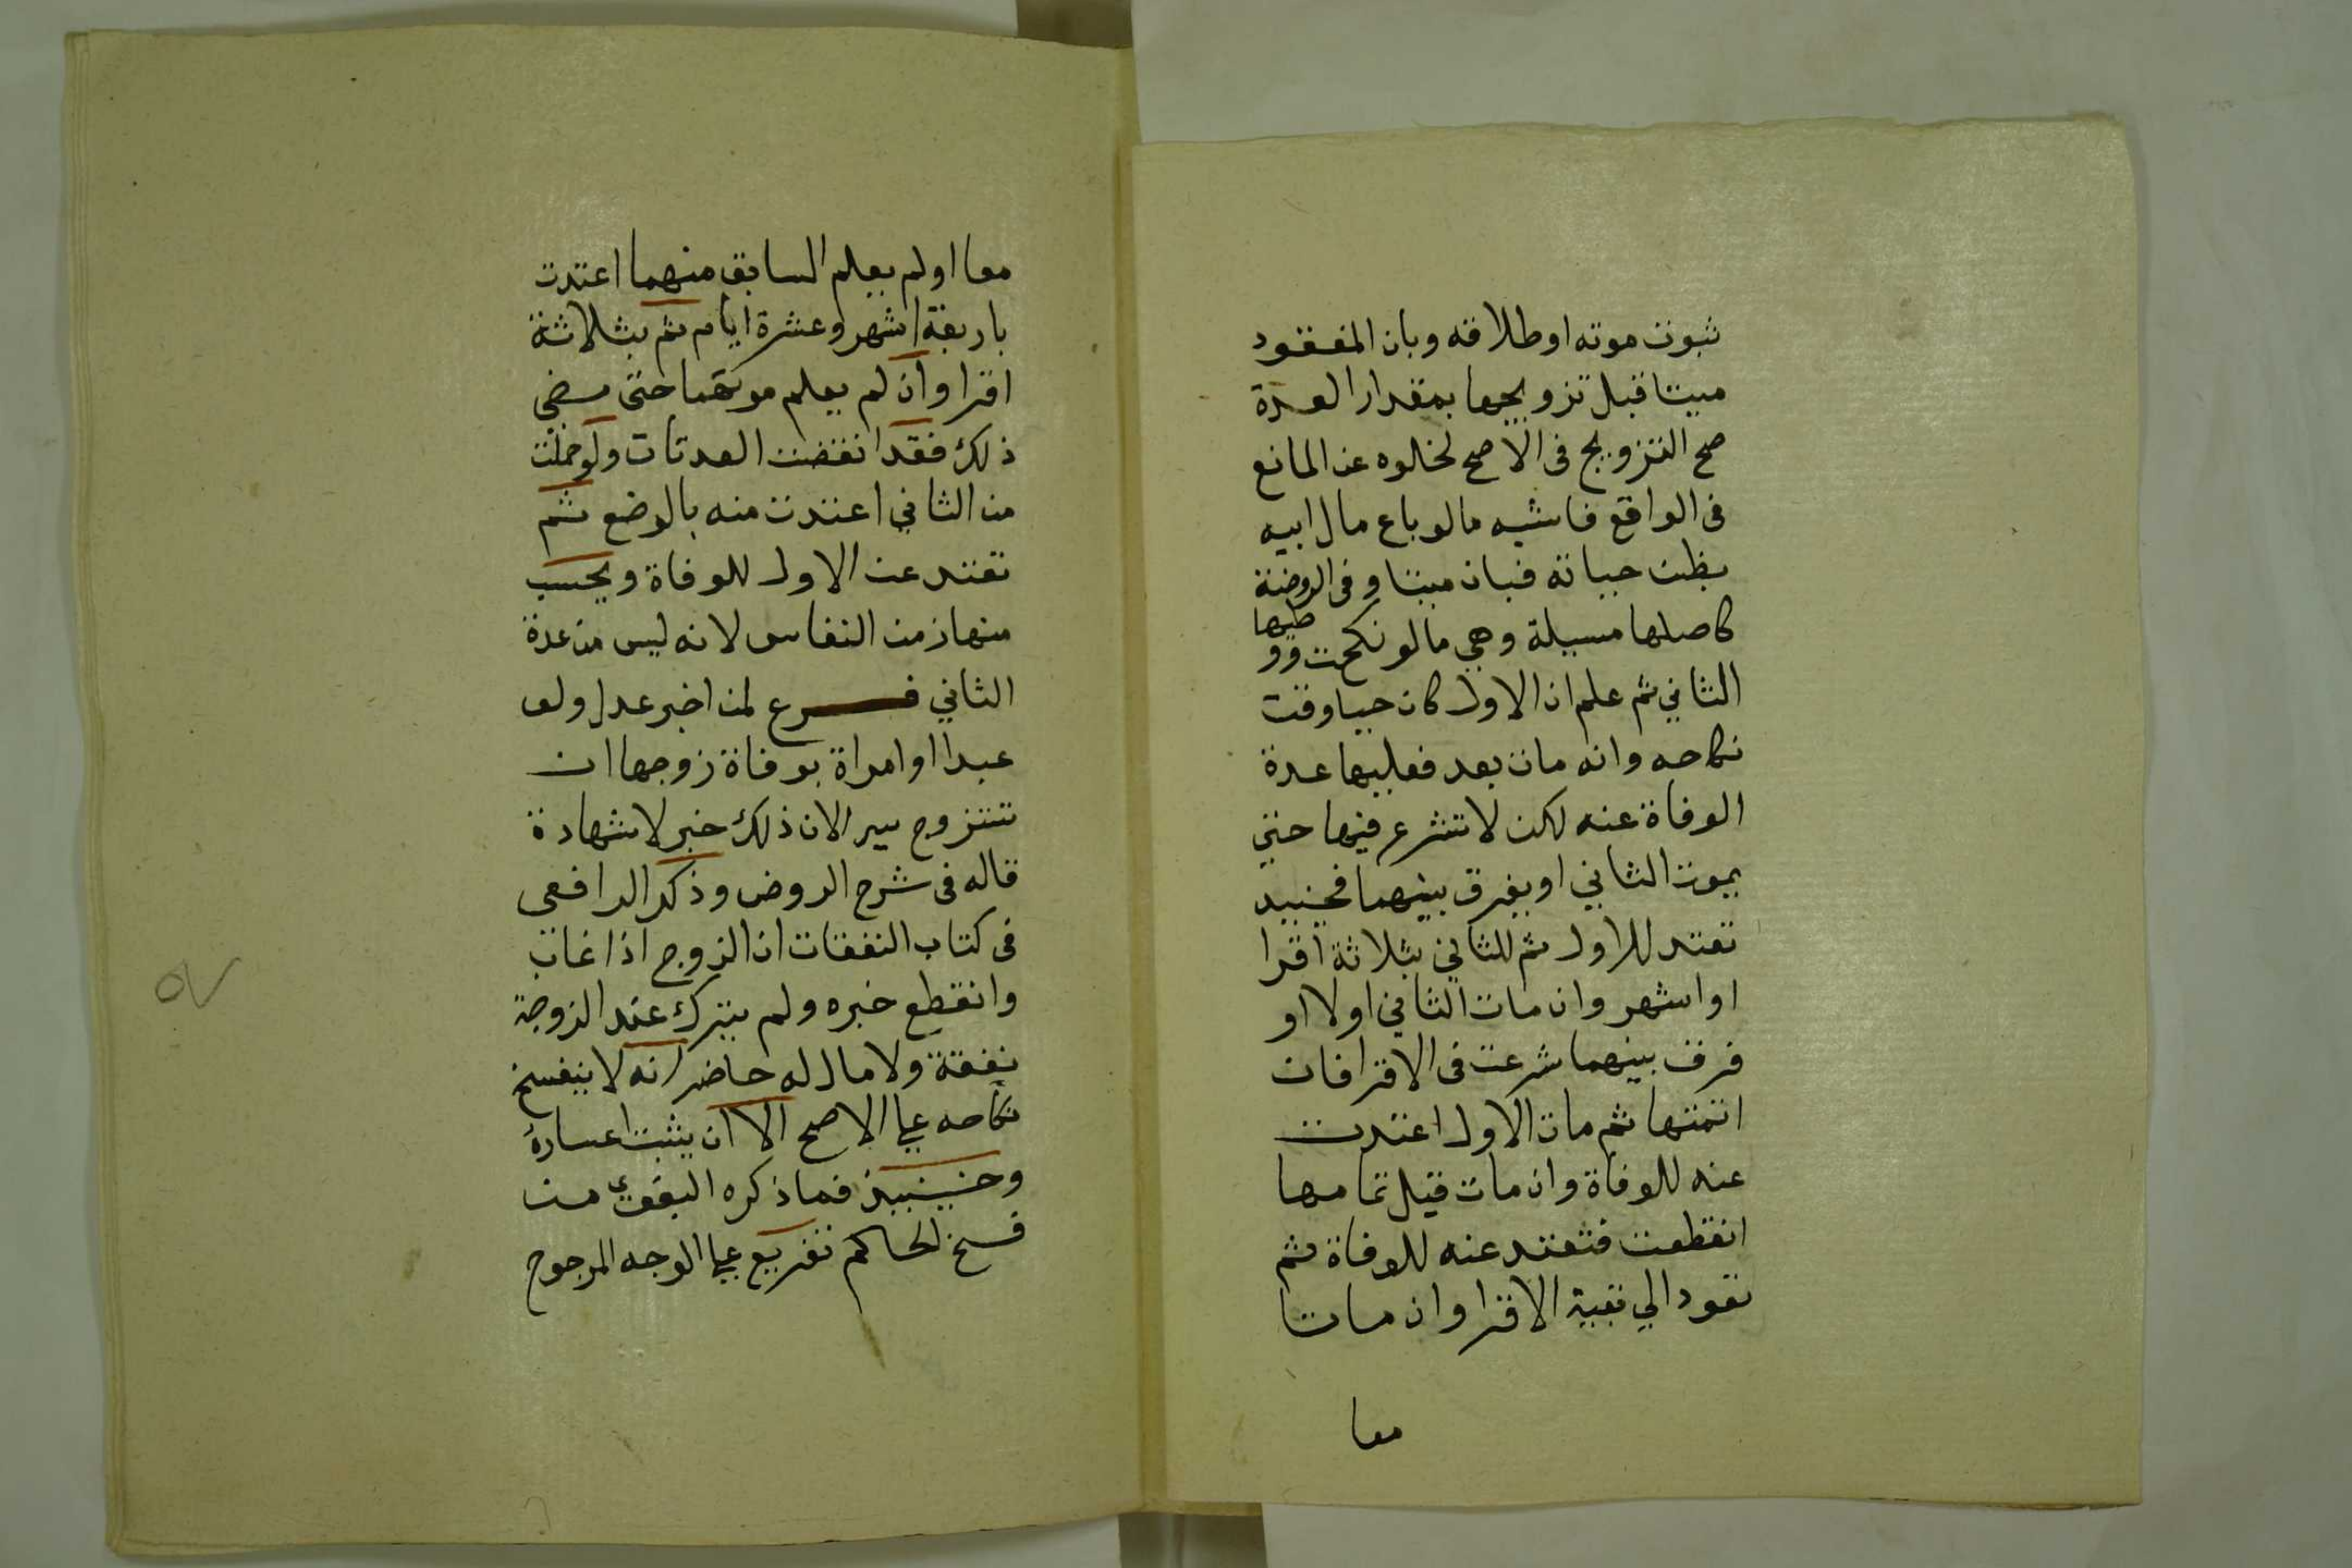 ثبوت موته او طلاقه وبان المفقود
ميتا قبل تزويجها بمقدار العدة
صح التزويج فى الاصح لخلوه عن المانع
فى الواقع فاشبه ما لو باع مال ابيه
بظن حياته فبان ميتا وفى الروضة
كاصلها مسيلة وهي ما لو نكحت ووطيها
الثاني ثم علم ان الاول كان حيا وقت
نكاحه وانه مات بعد فعليها عدة
الوفاة عنه لكن لا تشرع فيها حتي
يموت الثاني او يفرق بينهما فحينيد
تعتد للاول ثم للثاني بثلاثة اقرا
او اشهر وان مات الثاني اولا او
فرق بينهما شرعت فى الاقرا فان
اتمتها ثم مات الاول اعتدت
عنه للوفاة وان مات قبل تمامها
انقطعت فتعتد عنه للوفاة ثم
تعود الي بقية الاقرا وان ماتا
معا
معا او لم يعلم السابق منهما اعتدت
باربعة اشهر وعشرة ايام ثم بثلاثة
اقرا وان لم يعلم موتهما حتى مضي
ذلك فقد انقضت العدتان ولو حملت
من الثاني اعتدت منه بالوضع ثم
تعتد عن الاول للوفاة ويحسب
منها زمن النفاس لانه ليس من عدة
الثاني فرع لمن اخبر عدل ولو
عبدا او امراة بوفاة زوجها ان
تتزوج سرا لان ذلك خبر لا شهادة
قاله فى شرح الروض وذكر الرافعى
فى كتاب النفقات ان الزوج اذا غاب
وانقطع خبره ولم يترك عند الزوجة
نفقة ولا مال له حاضر انه لا ينفسخ
نكاحه علي الاصح الا ان يثبت اعساره
وحينيذ فما ذكره البغوي من
فسخ الحاكم تفريع علي الوجه المرجوح